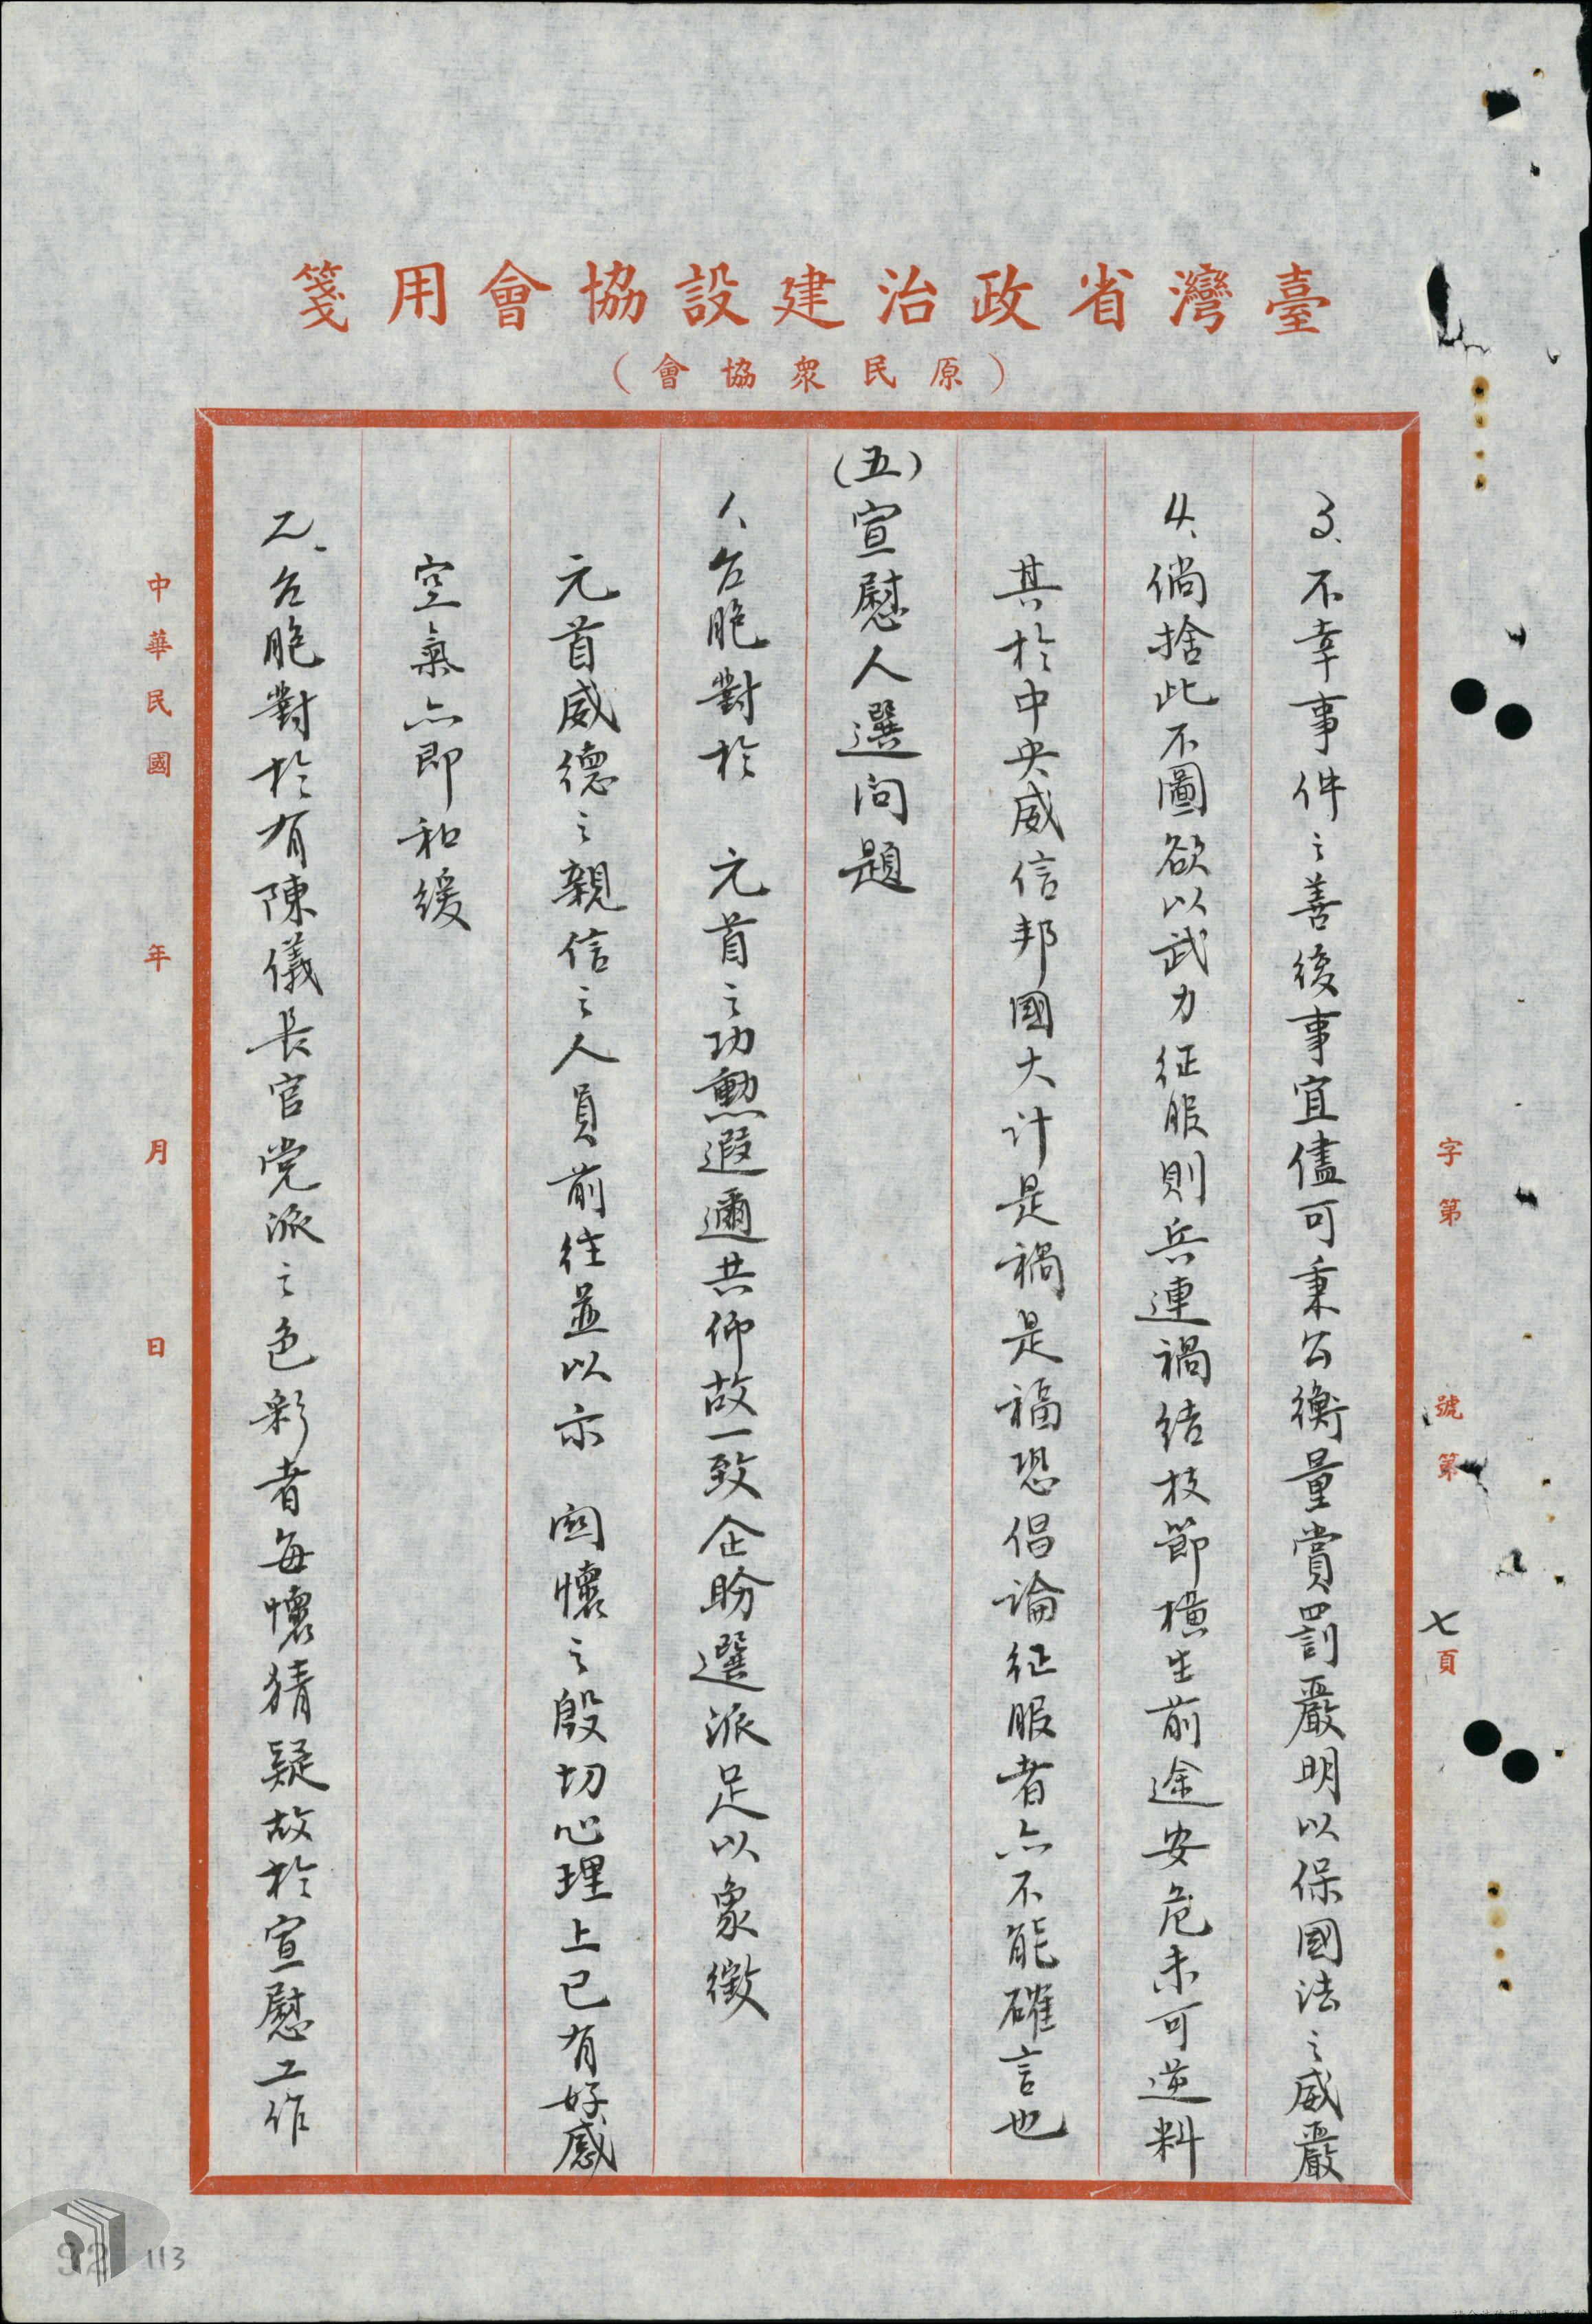 臺灣省政治建設協會用箋
（原民眾協會）
字第　號第七頁
3、不幸事件之善後事宜儘可秉公衡量賞罰嚴明以保國法之威嚴
4、倘捨此不圖欲以武力征服則兵連禍結枝節橫生前途安危未可逆料
其於中央威信邦國大計是禍是福恐倡論征服者亦不能確言也
（五）宣慰人選问題
1、台胞對於　元首之功勲遐邇共仰故一致企盼選派足以象徵
元首威德之親信之人員前往並以示　関懷之殷切心理上已有好感
空氣亦即和緩
乙、台胞對於有陳儀長官党派之色彩者每懷猜疑故於宣慰工作
中華民國　年　月　日
92　113